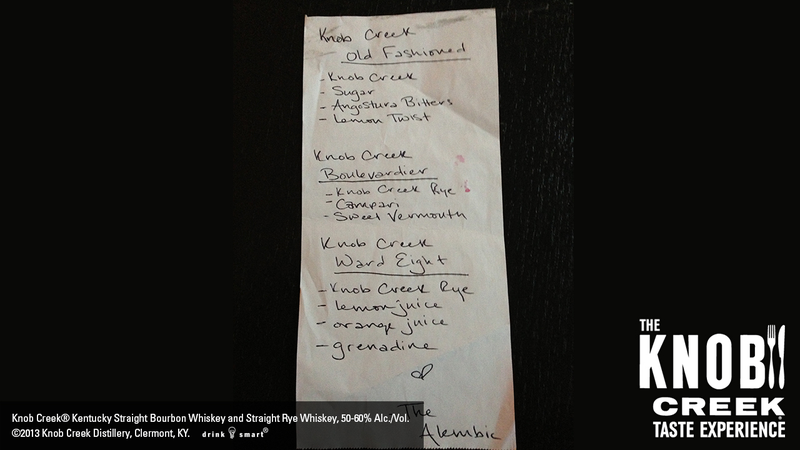 Knob Creek
Old Fashioned
- Knob Creek
- Sugar
- Angostura Bitters
- Lemon Twist
Knob Creek
Boulevardier
- Knob Creek Rye
- Campari
- Sweet Vermouth
Knob Creek
Ward Eight
- Knob Creek Rye
- lemon juice
- orange juice
- grenadine
The
Alembic
Knob Creek® Kentucky Straight Bourbon Whiskey and Straight Rye Whiskey, 50-60% Alc./Vol.
©2013 Knob Creek Distillery, Clermont, KY. drink smart®
THE
KNOB
CREEK®
TASTE EXPERIENCE